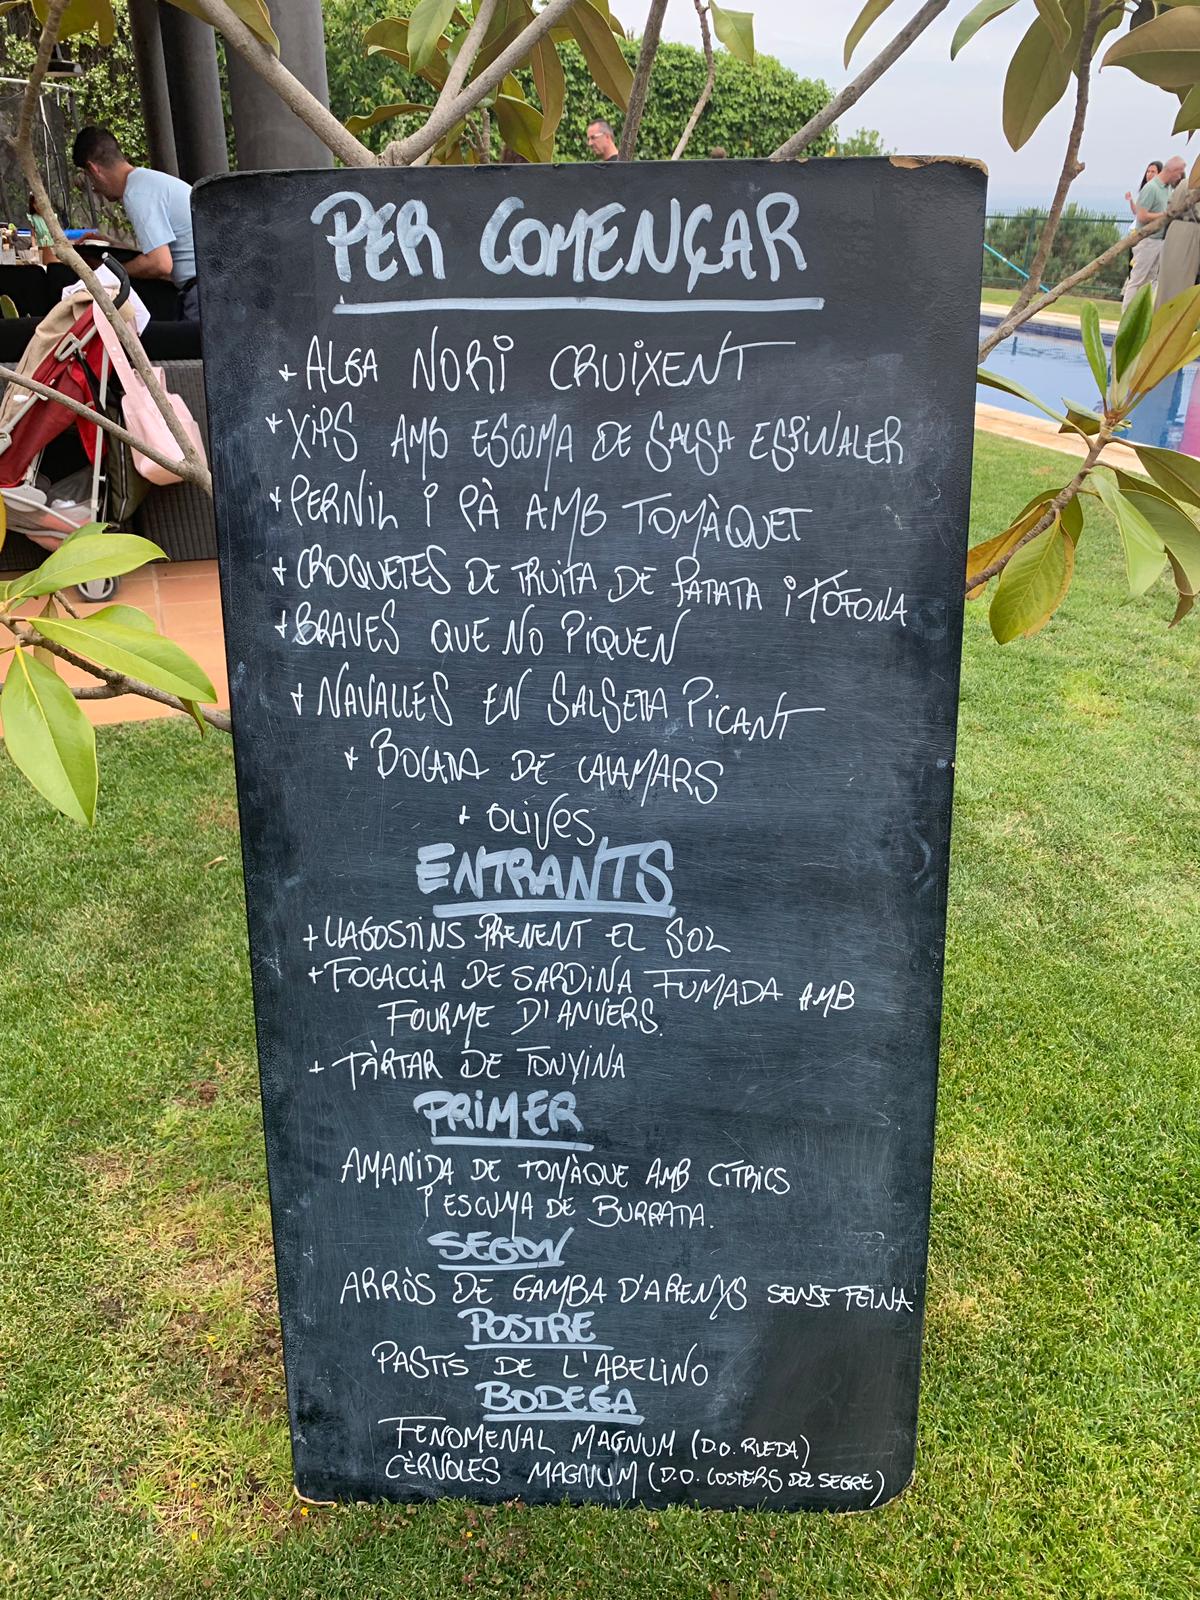 PER COMENÇAR
+ ALGA NORI CRUIXENT
+ XIPS AMB ESCUMA DE SALSA ESPINALER
+ PERNIL I PÀ AMB TOMÀQUET
+ CROQUETES DE TRUITA DE PATATA I TÒFONA
+ BRAVES QUE NO PIQUEN
+ NAVALLES EN SALSETA PICANT
+ BOCATA DE CALAMARS
+ OLIVES
ENTRANTS
+ LLAGOSTINS PRENENT EL SOL
+ FOGACCIA DE SARDINA FUMADA AMB
FOURME D'ANVERS.
+ TÀRTAR DE TONYINA
PRIMER
AMANIDA DE TOMÀQUE AMB CÍTRICS
I ESCUMA DE BURRATA.
SEGON
ARRÒS DE GAMBA D'ARENYS SENSE FEINA
POSTRE
PASTÍS DE L'ABELINO
BODEGA
FENOMENAL MAGNUM (D.O. RUEDA)
CÈRVOLES MAGNUM (D.O. COSTERS DEL SEGRE)